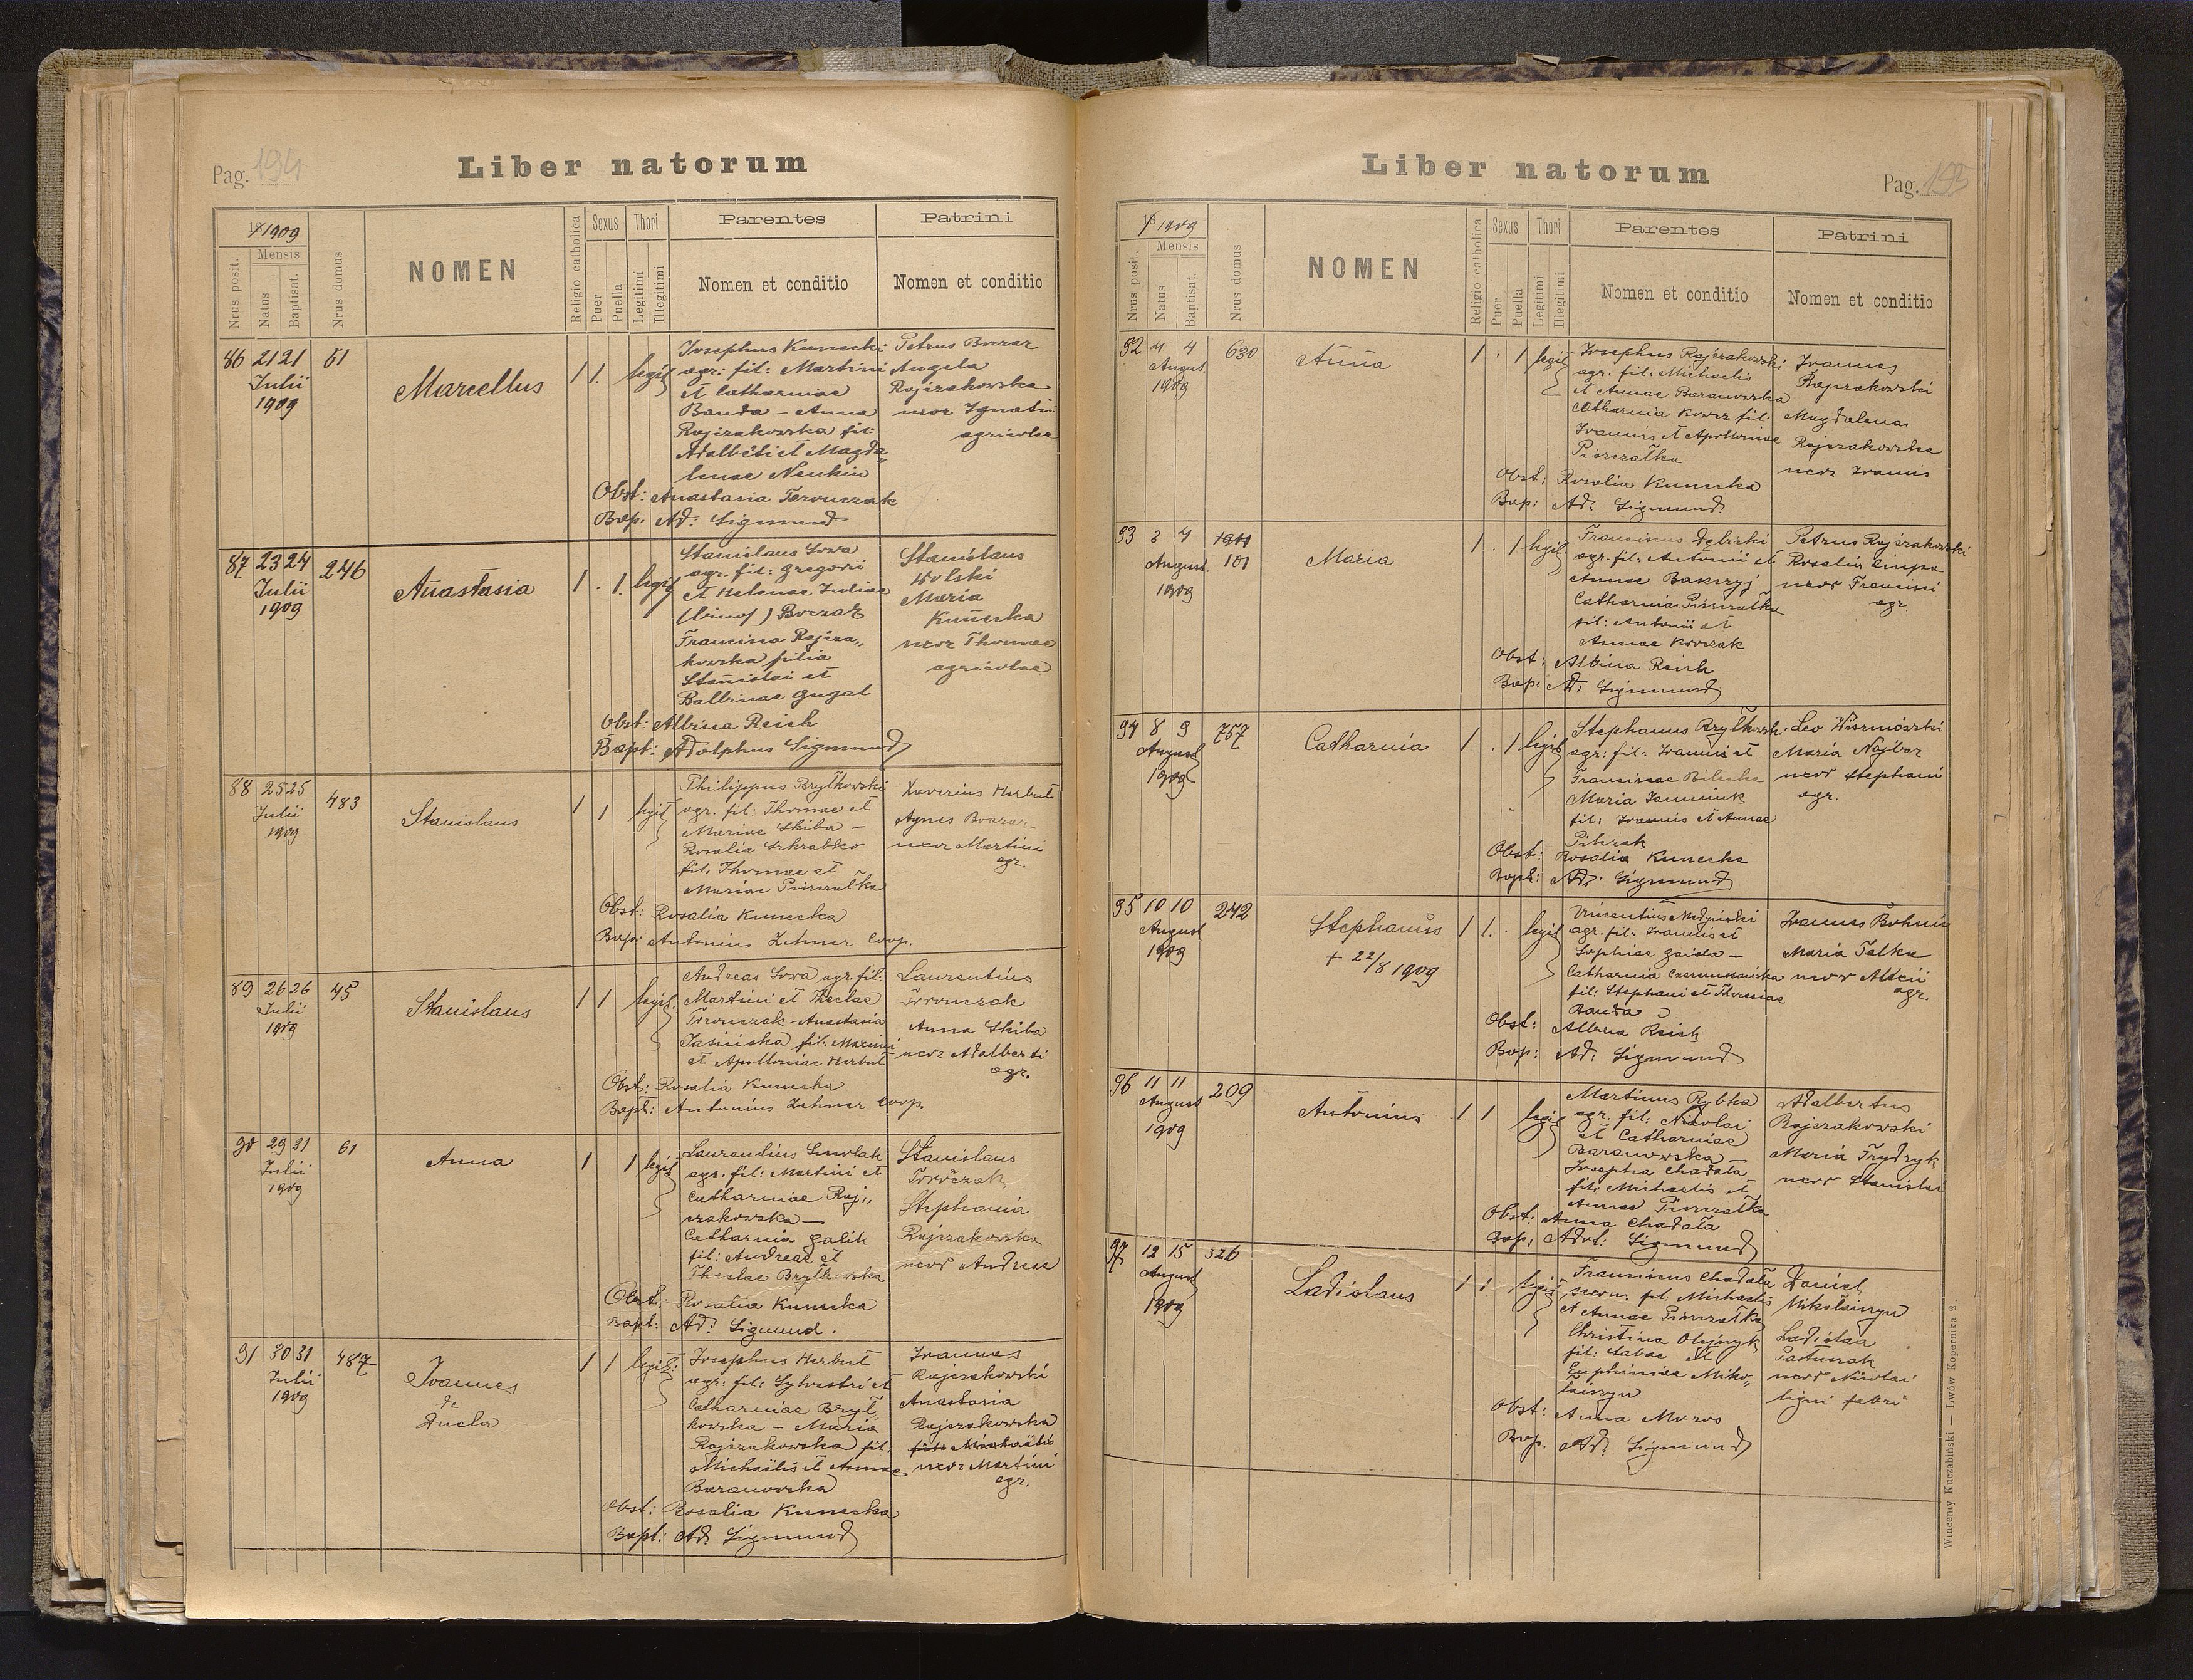 Pag. 194
Liber natorum
1909
Nrus posit.
Mensis
Natus
Baptisat.
Nrus domus
NOMEN
Religio catholica
Sexus
Puer
Puella
Thori
Legitimi
Illegitimi
Parentes
Nomen et conditio
Patrini
Nomen et conditio
86 21 21 51
Julii
1909
Marcellus
1 1. legit
Josephus Kunecki
agr: fil: Martini
et Catharinae
Banda - Anna
Rajczakowska fil:
Adalberti et Magda
lenae
Petrus Boczar
Angela
Rajczakowska
uxor Ignatii
agricolae
Obst: Anastasia Toronczak
Bap. Ad: Sigmund
87 23 24 246
Julii
1909
Anastasia
1 . 1. legit
Stanislaus Sowa
agr. fil: Gregorii
et Helenae Juliae
Boczar
Francisca Rajcza„
kowska filia
Stanislai et
Balbinae Gugal
Stanislaus
Wolski
Maria
Kunecka
uxor Thomae
agricolae
Obst: Albina Reich
Bapt: Adolphus Sigmund
88 25 25 483
Julii
1909
Stanislaus
1 1 legit
Philippus Brytkowski
agr. fil: Thomae et
Mariae Skiba -
Rosalia Szkrabko
fil. Thomae et
Mariae Piszczatka
Xaverius Herbut
Agnes Boczar
uxor Martini
agr.
Obst: Rosalia Kunecka
Bap: Antonius Zehner Coop.
89 26 26 45
Julii
1909
Stanislaus
1 1 legit.
Andreas Sowa agr. fil:
Martini et Theclae
Toronczak - Anastasia
Jasinska fil:
et Apolloniae Herbut
Laurentius
Toronczak
Anna Skiba
uxor Adalberti
agr.
Obst: Rosalia Kunecka
Bapt: Antonius Zehner Coop.
90 29 31 61
Julii
1909
Anna
1 1 legit
Laurentius Smolak
agr. fil: Martini et
Catharinae Raj„
czakowska -
Catharina Galik
fil: Andreae et
Theclae Brytkowska
Stanislaus
Torończak
Stephania
Rajczakowska
uxor Andreae
Obst: Rosalia Kunecka
Bapt: Ad: Sigmund.
91 30 31 487
Julii
1909
Joannes
de
Ducla
1 1 legit:
Josephus Herbut
agr: fil: Sylvestri et
Catharinae Bryt
kowska - Maria
Rajczakowska fil.
Michaëlis et Annae
Baranowska
Joannes
Rajczakowski
Anastasia
Rajczakowska
fil: Michaëlis
uxor Martini
agr.
Obst: Rosalia Kunecka
Bapt: Ad: Sigmund
Liber natorum
Pag. 193
1909
Nrus posit.
Mensis
Natus
Baptisat.
Nrus domus
NOMEN
Religio catholica
Sexus
Puer
Puella
Thori
Legitimi
Illegitimi
Parentes
Nomen et conditio
Patrini
Nomen et conditio
92 4 4 630
August.
1909
Anna
1 . 1 legit
Josephus Rajczakowski
agr. fil: Michaelis
et Annae Baranowska
Catharina Kowcz fil:
Joannis et Apolloniae
Piszczatka
Joannes
Rajczakowski
Magdalena
Rajczakowska
uxor Joannis
Obst: Rosalia Kunecka
Bap: Ad: Sigmund
93 3 4 1911
August. 101
1909
Maria
1 . 1 legit
Franciscus Dębicki
agr. fil: Antonii et
Annae Bakszyj
Catharina Piszczatka
fil: Antonii et
Annae Kowczak
Petrus Rajczakowski
Rosalia
uxor Francisci
agr.
Obst: Albina Reich
Bap: Ad: Sigmund
94 8 9 757
August
1909
Catharina
1 . 1 legit
Stephanus Brytkowski
agr: fil: Joannis et
Franciscae Bilecka
Maria
fil: Joannis et Annae
Leo Wiszniowski
Maria Najbar
uxor Stephani
agr.
Obst: Rosalia Kunecka
Bapt: Ad: Sigmund
95 10 10 242
August
1909
Stephanus
+ 22/8 1909
1 1. legit
Vincentius
agr. fil: Joannis et
Sophiae Gaida -
Catharina
fil: Stephani et Theresiae
Banda
Joannes
Maria
uxor
agr.
Obst: Albina Reich
Bap: Ad: Sigmund
96 11 11 209
August
1909
Antonius
1 1 legit
Martinus Rybka
agr. fil: Nicolai
et Catharinae
Baranowska -
Josepha Chadala
fil: Michaelis et
Annae Piszczatka
Adalbertus
Rajczakowski
Maria Frydryk
uxor Stanislai
Obst: Anna Chadala
Bap: Adol: Sigmund
97 12 15 326
August
1909
Ladislaus
1 1 legit
Franciscus Chadala
fil. Michaelis
et Annae Piszczatka
Christina Olejnyk
fil: Sabae et
Euphimiae Miko„
laiszyn
Daniel
Mikolaiszyn
Ladislaa
Pastuszak
uxor Nicolai
ligni fabri
Obst: Anna Moros
Bap. Ad: Sigmund
Winceny Kuczabiński — Lwów Kopernika 2.